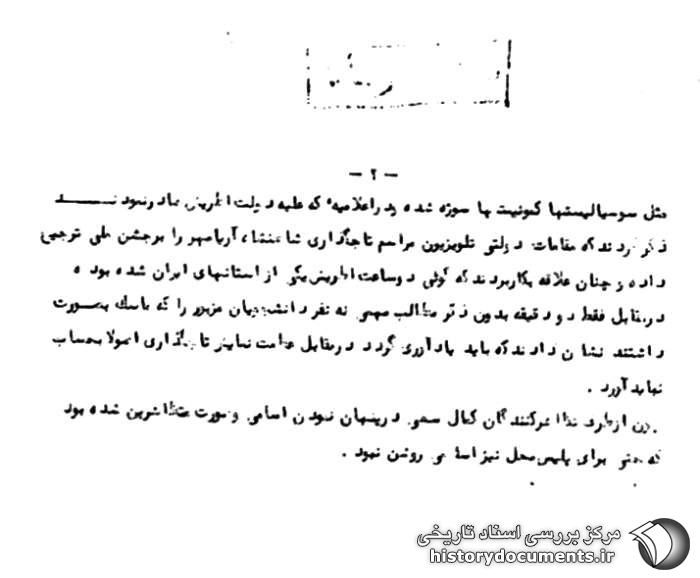 - ۲ -
مثل سوسیالیستها کمونیست ها سوژه شده بد راعلامیه که علیه دولت اطریش صادرنمودند
ذکر کردند که مقامات دولتی تلویزیون مراسم تاجگذاری شاهنشاه آریامهر را برجشن ملی ترجیح
داده و چنان علاقه بکاربردند که گوئی دوساعت اطریش یکی از استانهای ایران شده بود ه
درمقابل فقط دو دقیقه بدون ذکر مطالب مهمی نه نفر دانشجویان مزبور را که ماسک بصورت
داشتند نشان دادند که باید یادآوری گردد درمقابل عظمت نمایش تاجگذاری اصولا بحساب
نباید آورد .
چون ازطرف تظاهرکنندگان کمال سعی درپنهان نمودن اسامی وصورت متظاهرین شده بود
که حتی برای پلیس محل نیز اسامی روشن نبود .
مرکز بررسی اسناد تاریخی
historydocuments.ir